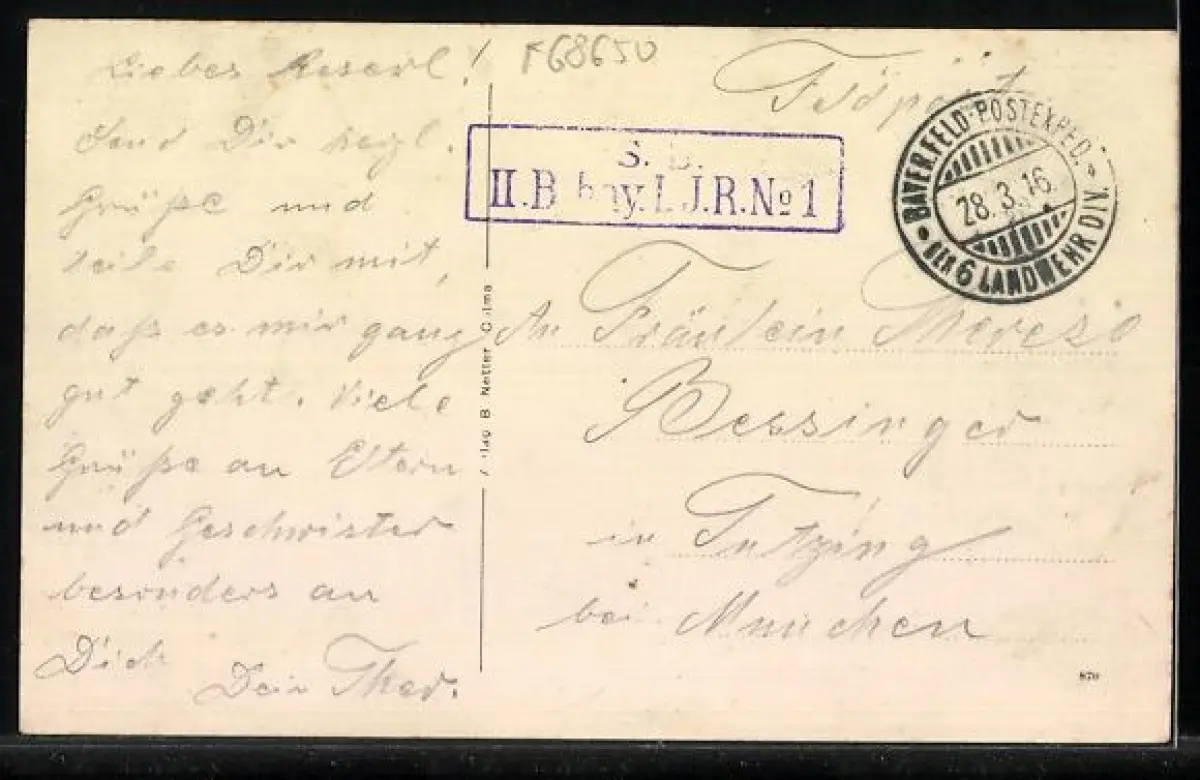 F68650
Liebes Reserl!
Send Dir herzl.
Grüße und
teile Dir mit,
daß es mir ganz
gut geht. Viele
Grüße an Eltern
und Geschwister
besonders an
Dich
Dein
Feldpost
S. B.
II. B. bay. L. J. R. No 1
BAYER. FELD-POSTEXPED.
28. 3. 16.
DER 6 LANDWEHR DIV.
An Fräulein Therese
Bessinger
in Tutzing
bei München
Verlag B Netter Colma
870